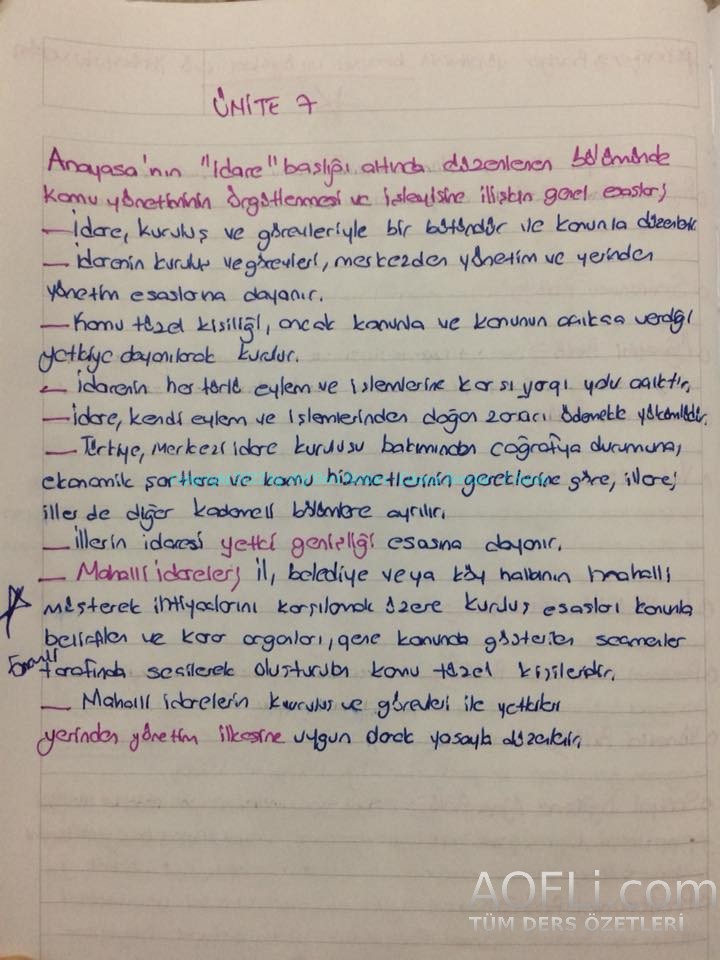 ÜNİTE 7
Anayasa'nın "İdare" başlığı altında düzenlenen bölümünde
kamu yönetiminin örgütlenmesi ve işleyişine ilişkin genel esaslar;
— İdare, kuruluş ve görevleriyle bir bütündür ve kanunla düzenlenir.
— İdarenin kuruluş ve görevleri, merkezden yönetim ve yerinden
yönetim esaslarına dayanır.
— Kamu tüzel kişiliği, ancak kanunla ve kanunun açıkça verdiği
yetkiye dayanılarak kurulur.
— İdarenin her türlü eylem ve işlemlerine karşı yargı yolu açıktır.
— İdare, kendi eylem ve işlemlerinden doğan zararı ödemekle yükümlüdür.
— Türkiye, Merkezi idare kuruluşu bakımından coğrafya durumuna,
ekonomik şartlara ve kamu hizmetlerinin gereklerine göre, illere;
iller de diğer kademeli bölümlere ayrılır.
— İllerin idaresi yetki genişliği esasına dayanır.
— Mahalli idareler; il, belediye veya köy halkının mahalli
müşterek ihtiyaçlarını karşılamak üzere kuruluş esasları kanunla
belirtilen ve karar organları, gene kanunda gösterilen seçmenler
tarafında seçilerek oluşturulan kamu tüzel kişileridir.
— Mahalli idarelerin kuruluş ve görevleri ile yetkileri
yerinden yönetim ilkesine uygun olarak yasayla düzenlenir.
AOFLi.com
TÜM DERS ÖZETLERİ